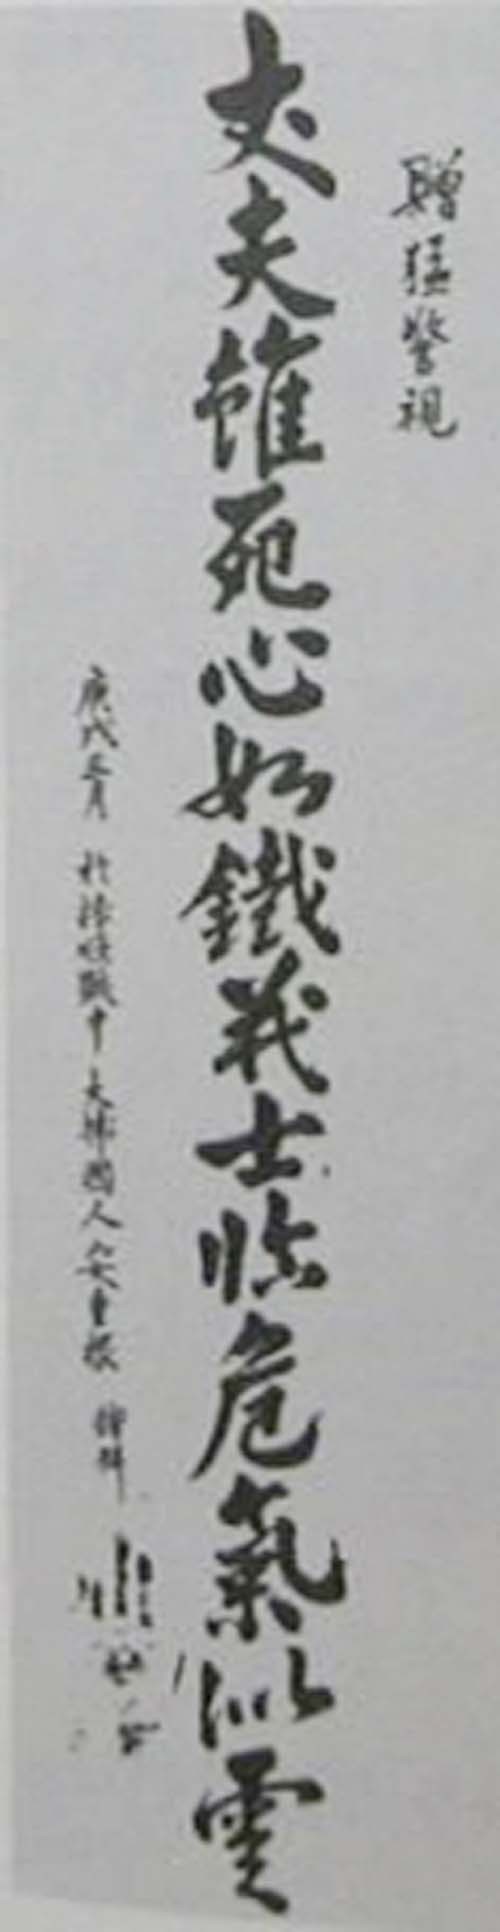 贈猛警視
丈夫雖死心如鐵義士臨危氣似雲
庚戌三月 於旅順獄中 大韓國人 安重根 謹拜